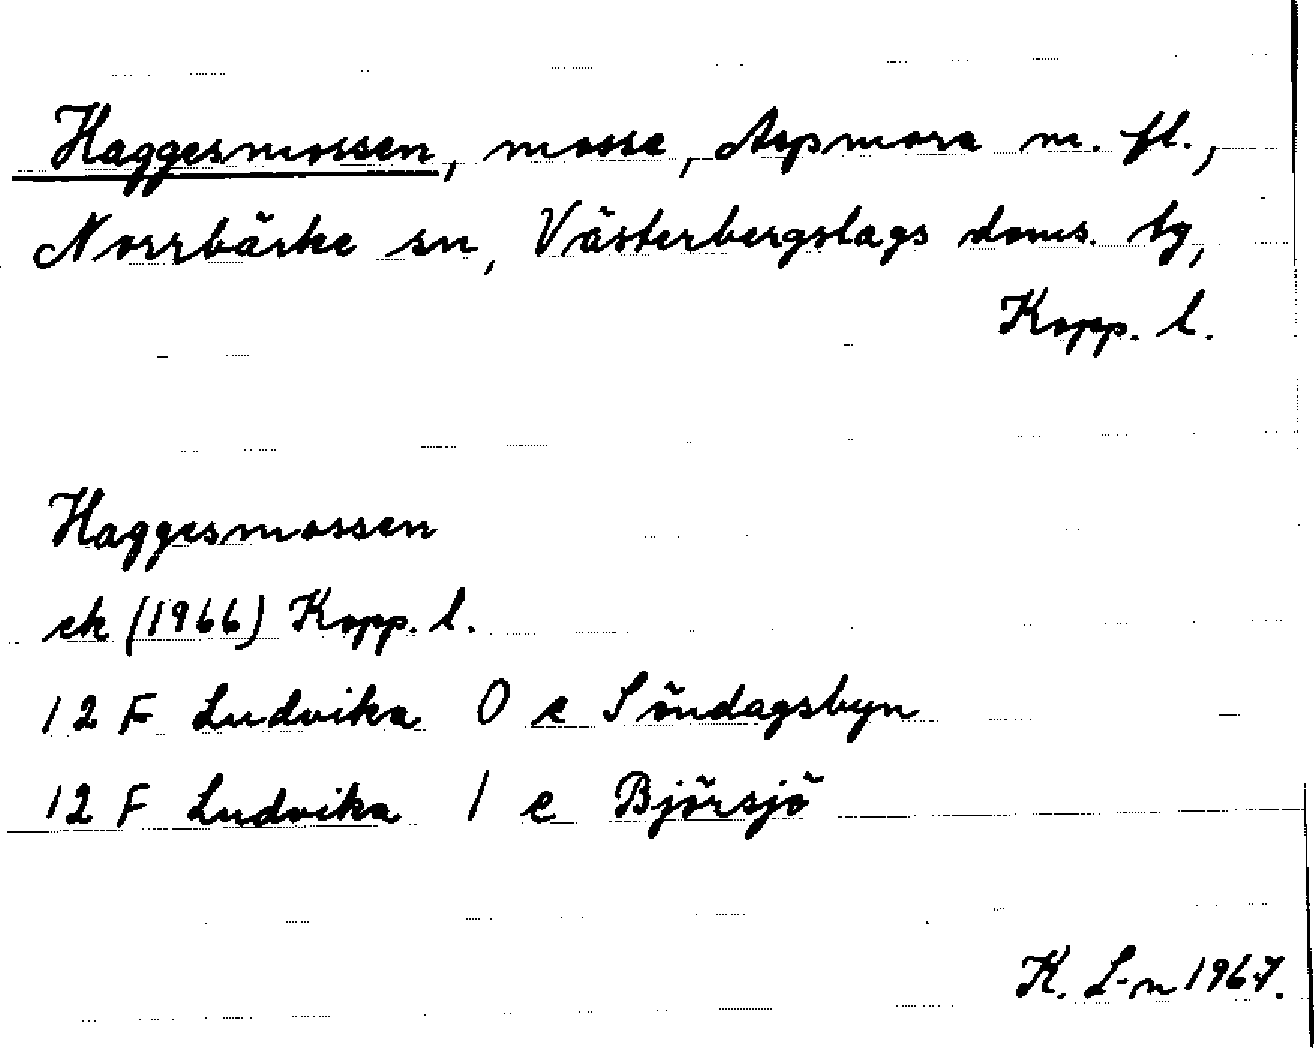 Haggesmossen, mosse, Aspmora m. fl.,
Norrbärke sn, Västerbergslags doms. tg,
Kopp. l.
Haggesmossen
ek (1966) Kopp. l.
12 F Ludvika 0 e Söndagsbyn
12 F Ludvika 1 e Björsjö
K. L-n 1967.